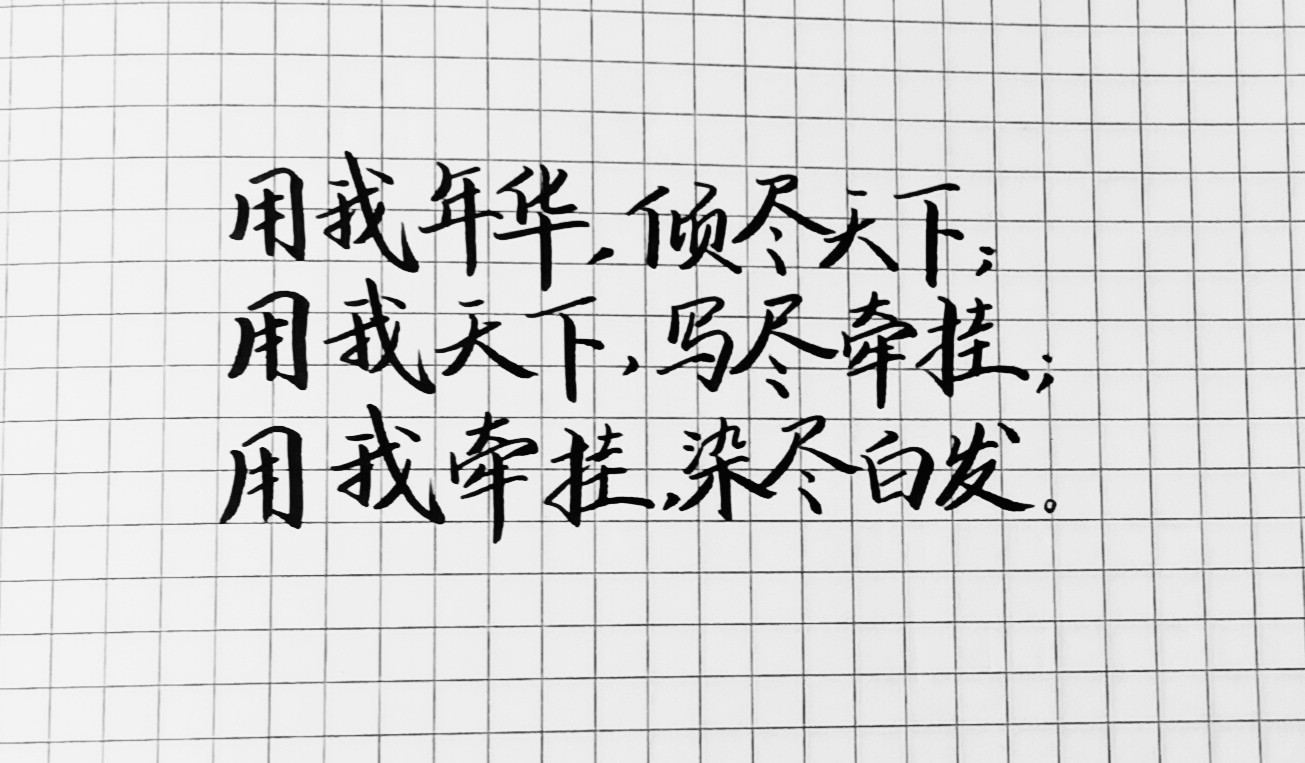 用我年华，倾尽天下；
用我天下，写尽牵挂；
用我牵挂，染尽白发。